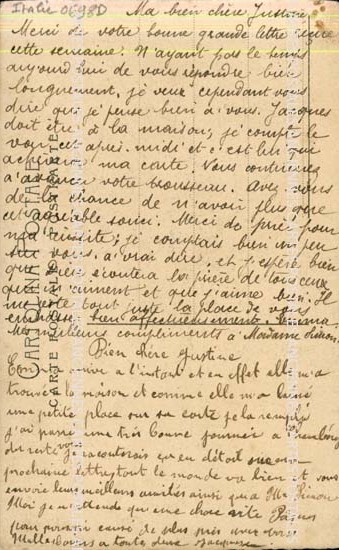 Italie 0698D
Ma bien chère Justine,
Merci de votre bonne grande lettre reçue
cette semaine. N'ayant pas le temps
aujourd'hui de vous répondre bien
longuement, je veux cependant vous
dire que je pense bien à vous. Jacques
doit être à la maison; je compte le
voir cet après-midi et c'est lui qui
ma carte. Vous continuez
à votre trousseau. Avez-vous
de la chance de n'avoir plus que
cet agréable souci. Merci de prier pour
ma réussite; je comptais bien un peu
sur vous, à vrai dire, et j'espère bien
que écoutera la prière de tous ceux
qui m'aiment et que j'aime bien. Il
me reste tout juste la place de vous
embrasser bien affectueusement.
Mes meilleurs compliments à Madame Simon.
Bien chère Justine
arrive à l'instant et en effet elle m'a
trouvé à la maison et comme elle m'a laissé
une petite place sur sa carte je la remplis
j'ai passé une très bonne journée à
du reste je vous raconterais ça en détail ma
prochaine lettre, tout le monde va bien et vous
envoie leurs meilleurs amitiés ainsi qu'à Mme Simon
Moi je n'attends qu'une chose vite Pâques
pour pouvoir causer de plus près
Mille baisers à toutes deux Jacques
CARTOLINA POSTALE
CARTE POSTALE